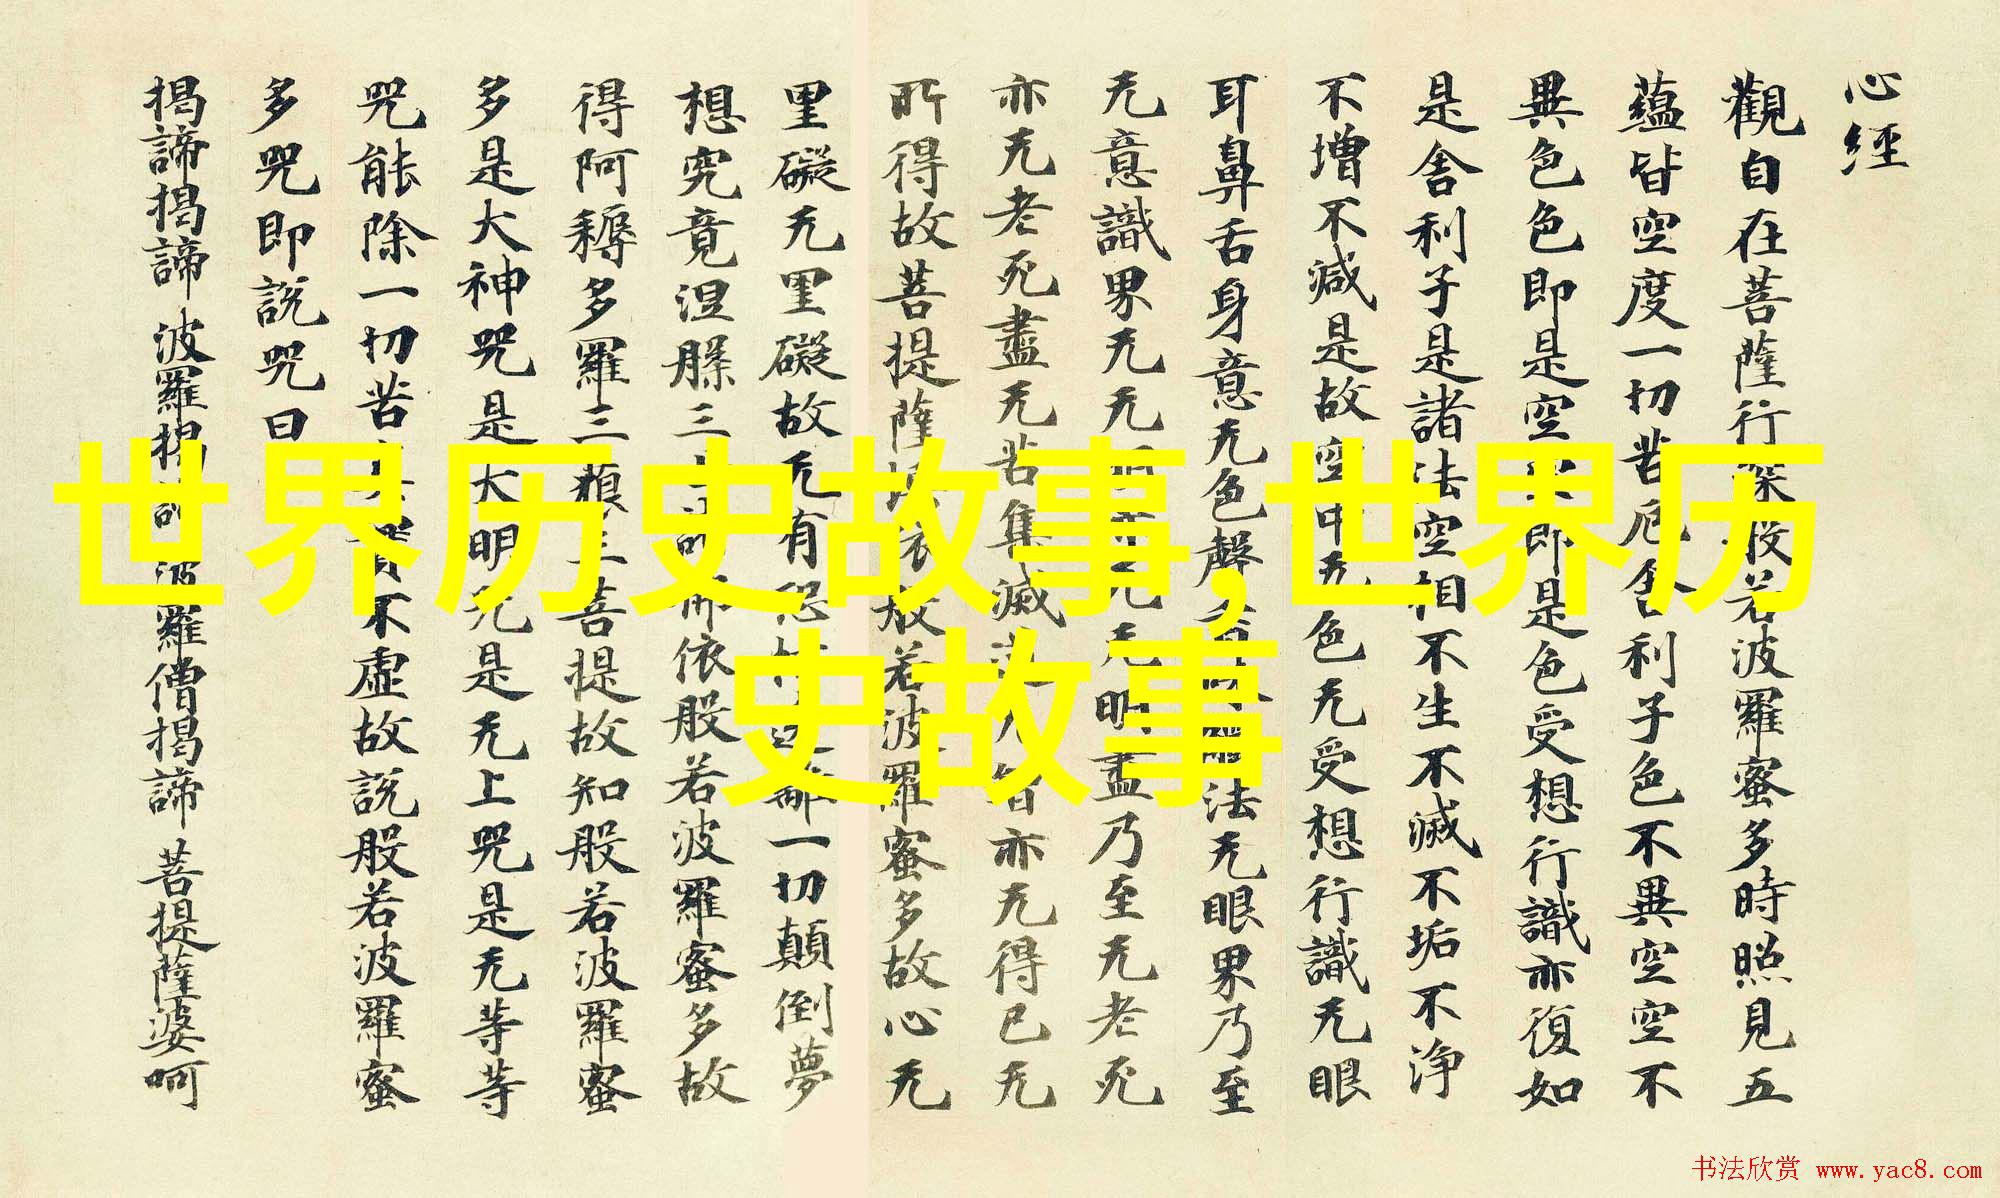 心經
觀自在菩薩行深般若波羅蜜多時照見五
蘊皆空度一切苦厄舍利子色不異空空不
異色色即是空空即是色受想行識亦復如
是舍利子是諸法空相不生不滅不垢不净
不增不减是故空中无色无受想行識无眼
耳鼻舌身意无色聲香味觸法无眼界乃至
无意識界无无明亦无无明盡乃至无老死
亦无老死盡无苦集滅道无智亦无得已无
所得故菩提薩埵依般若波羅蜜多故心无
罣礙无罣礙故无有恐怖遠離一切顛倒夢
想究竟涅槃三世諸佛依般若波羅蜜多故
得阿耨多羅三藐三菩提故知般若波羅蜜
多是大神咒是大明咒是无上咒是无等等
咒能除一切苦真實不虛故說般若波羅蜜
多咒即說咒曰
揭諦揭諦 波羅揭諦 波羅僧揭諦 菩提薩婆呵
世界历史故事,世界历
史故事
书法欣赏 www.yac8.com